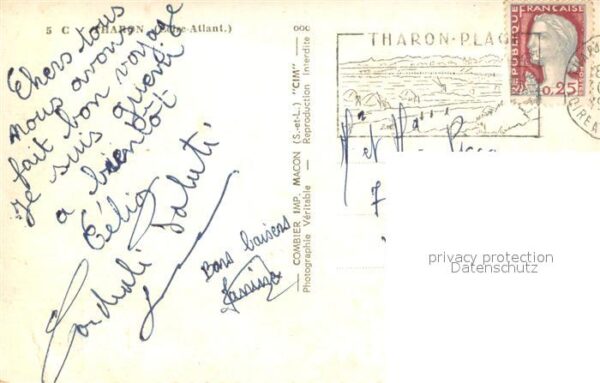 5 C THARON (Loire-Atlant.)
Chers tous
nous avons
fait bon voyage
Je suis guéri
a bientôt
Célio
Cordiali Saluti
Bons baisers
COMBIER IMP. MACON (S.-et-L.) "CIM"
Photographie Véritable - Reproduction Interdite
THARON-PLAGE
REPUBLIQUE FRANÇAISE
0,25
Mr et Mme
7
privacy protection
Datenschutz